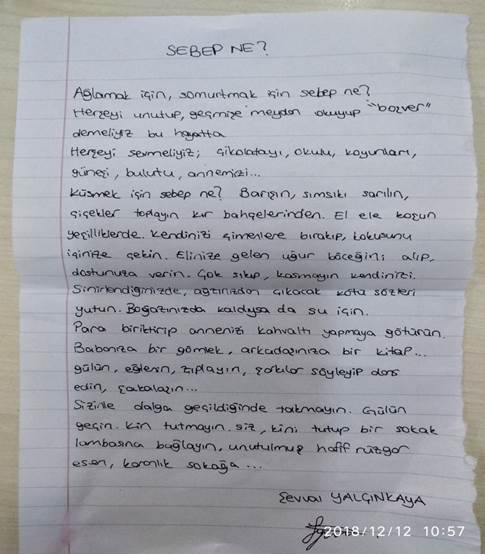 SEBEP NE?
Ağlamak için, somurtmak için sebep ne?
Herşeyi unutup, geçmişe meydan okuyup "bozver"
demeliyiz bu hayatta
Herşeyi sevmeliyiz; çikolatayı, okulu, koyunları,
güneşi, bulutu, annemizi...
Küsmek için sebep ne? Barışın, sımsıkı sarılın,
çiçekler toplayın kır bahçelerinden. El ele koşun
yeşilliklerde. Kendinizi çimenlere bırakıp, kokusunu
içinize çekin. Elinize gelen uğur böceğini alıp,
dostunuza verin. Çok sıkıp, kasmayın kendinizi.
Sinirlendiğinizde, ağzınızdan çıkacak kötü sözleri
yutun. Boğazınızda kaldıysa da su için.
Para biriktirip annenizi kahvaltı yapmaya götürün.
Babanıza bir gömlek, arkadaşınıza bir kitap...
gülün, eğlenin, zıplayın, şarkılar söyleyip dans
edin, şakalaşın...
Sizinle dalga geçildiğinde takmayın. Gülün
geçin. Kin tutmayın. siz, kini tutup bir sokak
lambasına bağlayın, unutulmuş hafif rüzgar
esen, karanlık sokağa...
Şevval YALÇINKAYA
2018/12/12 10:57